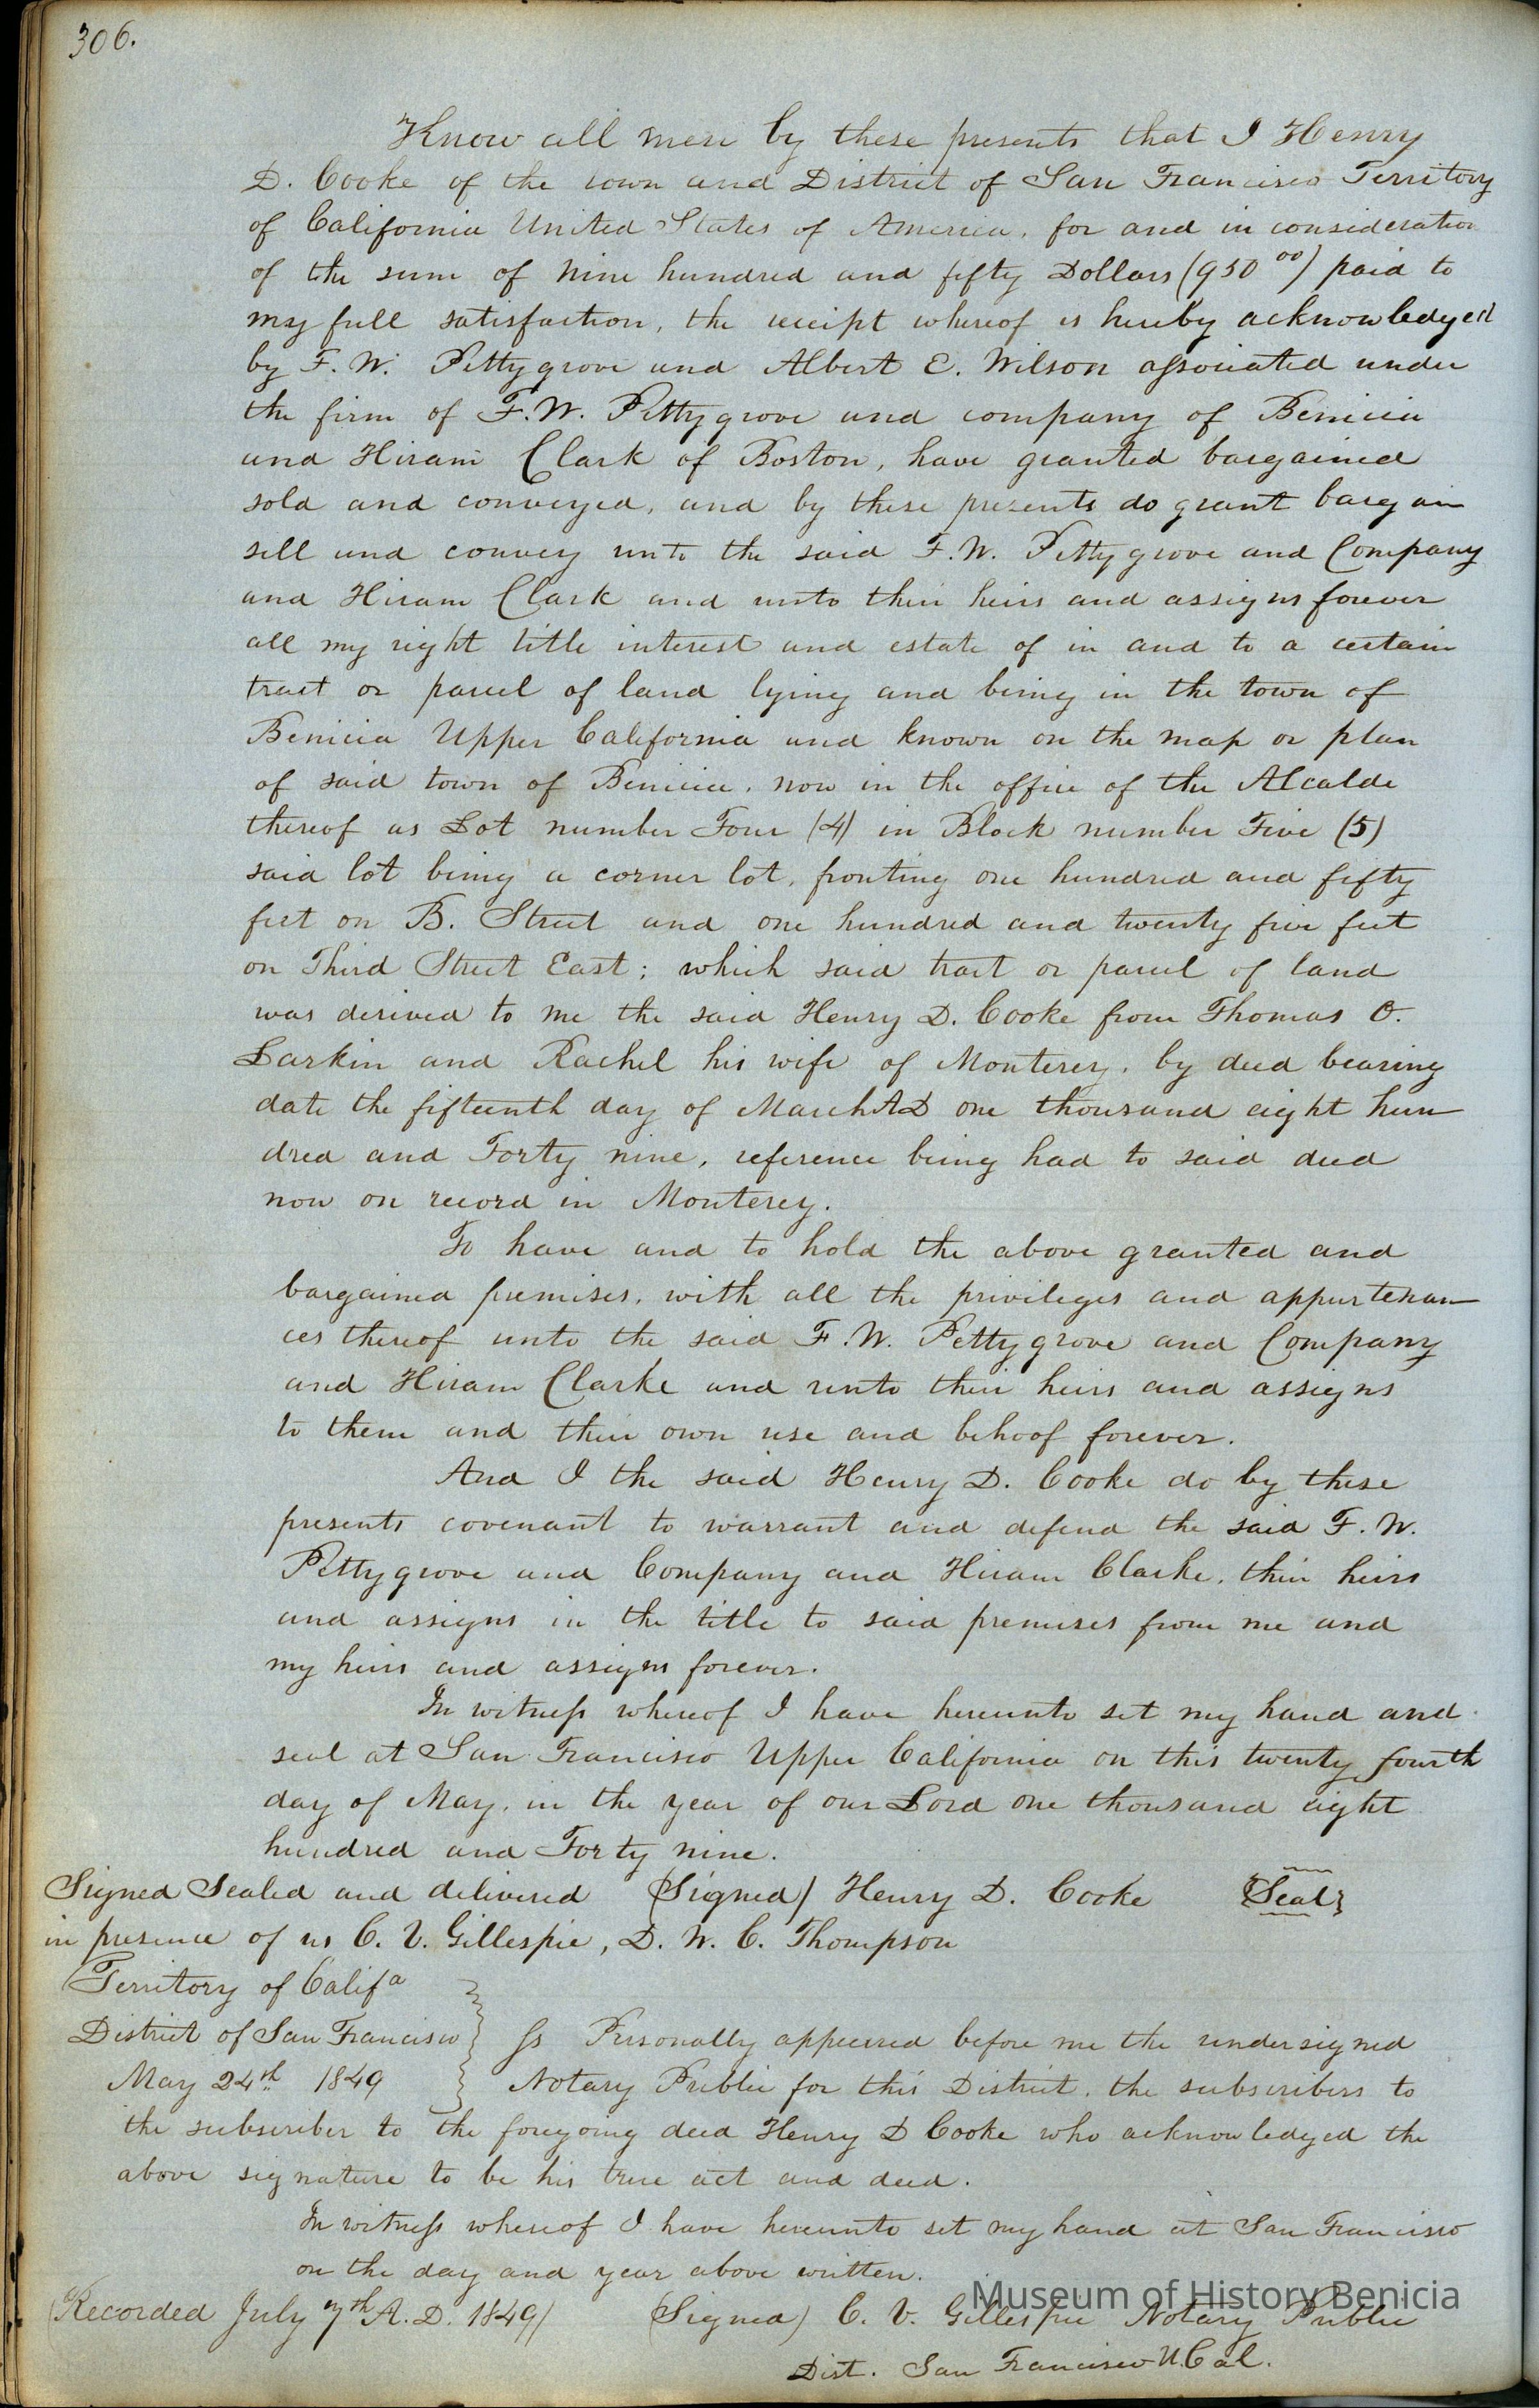 306.
Know all men by these presents that I Henry
D. Cooke of the town and District of San Francisco Territory
of California United States of America, for and in consideration
of the sum of Nine hundred and fifty Dollars (950 00) paid to
my full satisfaction, the receipt whereof is hereby acknowledged
by F. W. Pettygrove and Albert E. Wilson associated under
the firm of F. W. Pettygrove and company of Benicia
and Hiram Clark of Boston, have granted bargained
sold and conveyed, and by these presents do grant bargain
sell and convey unto the said F. W. Pettygrove and Company
and Hiram Clark and unto their heirs and assigns forever
all my right title interest and estate of in and to a certain
tract or parcel of land lying and being in the town of
Benicia Upper California and known on the map or plan
of said town of Benicia, now in the office of the Alcalde
thereof as Lot number Four (4) in Block number Five (5)
said lot being a corner lot, fronting one hundred and fifty
feet on B. Street and one hundred and twenty five feet
on Third Street East; which said tract or parcel of land
was derived to me the said Henry D. Cooke from Thomas O.
Larkin and Rachel his wife of Monterey, by deed bearing
date the fifteenth day of March AD one thousand eight hun
dred and Forty nine, reference being had to said deed
now on record in Monterey.
To have and to hold the above granted and
bargained premises, with all the privileges and appurtenan
ces thereof unto the said F. W. Pettygrove and Company
and Hiram Clarke and unto their heirs and assigns
to them and their own use and behoof forever.
And I the said Henry D. Cooke do by these
presents covenant to warrant and defend the said F. W.
Pettygrove and Company and Hiram Clarke, their heirs
and assigns in the title to said premises from me and
my heirs and assigns forever.
In witness whereof I have hereunto set my hand and
seal at San Francisco Upper California on this twenty fourth
day of May, in the year of our Lord one thousand eight
hundred and Forty nine.
Signed Sealed and delivered (Signed) Henry D. Cooke {Seal}
in presence of us C. V. Gillespie, D. W. C. Thompson
Territory of Califa
District of San Francisco } Ss Personally appeared before me the undersigned
May 24th 1849 Notary Public for this District, the subscribers to
the subscriber to the foregoing deed Henry D Cooke who acknowledged the
above signature to be his true act and deed.
In witness whereof I have hereunto set my hand at San Francisco
on the day and year above written.
Museum of History Benicia
(Recorded July 7th A. D. 1849) (Signed) C. V. Gillespie Notary Public
Dist. San Francisco U. Cal.